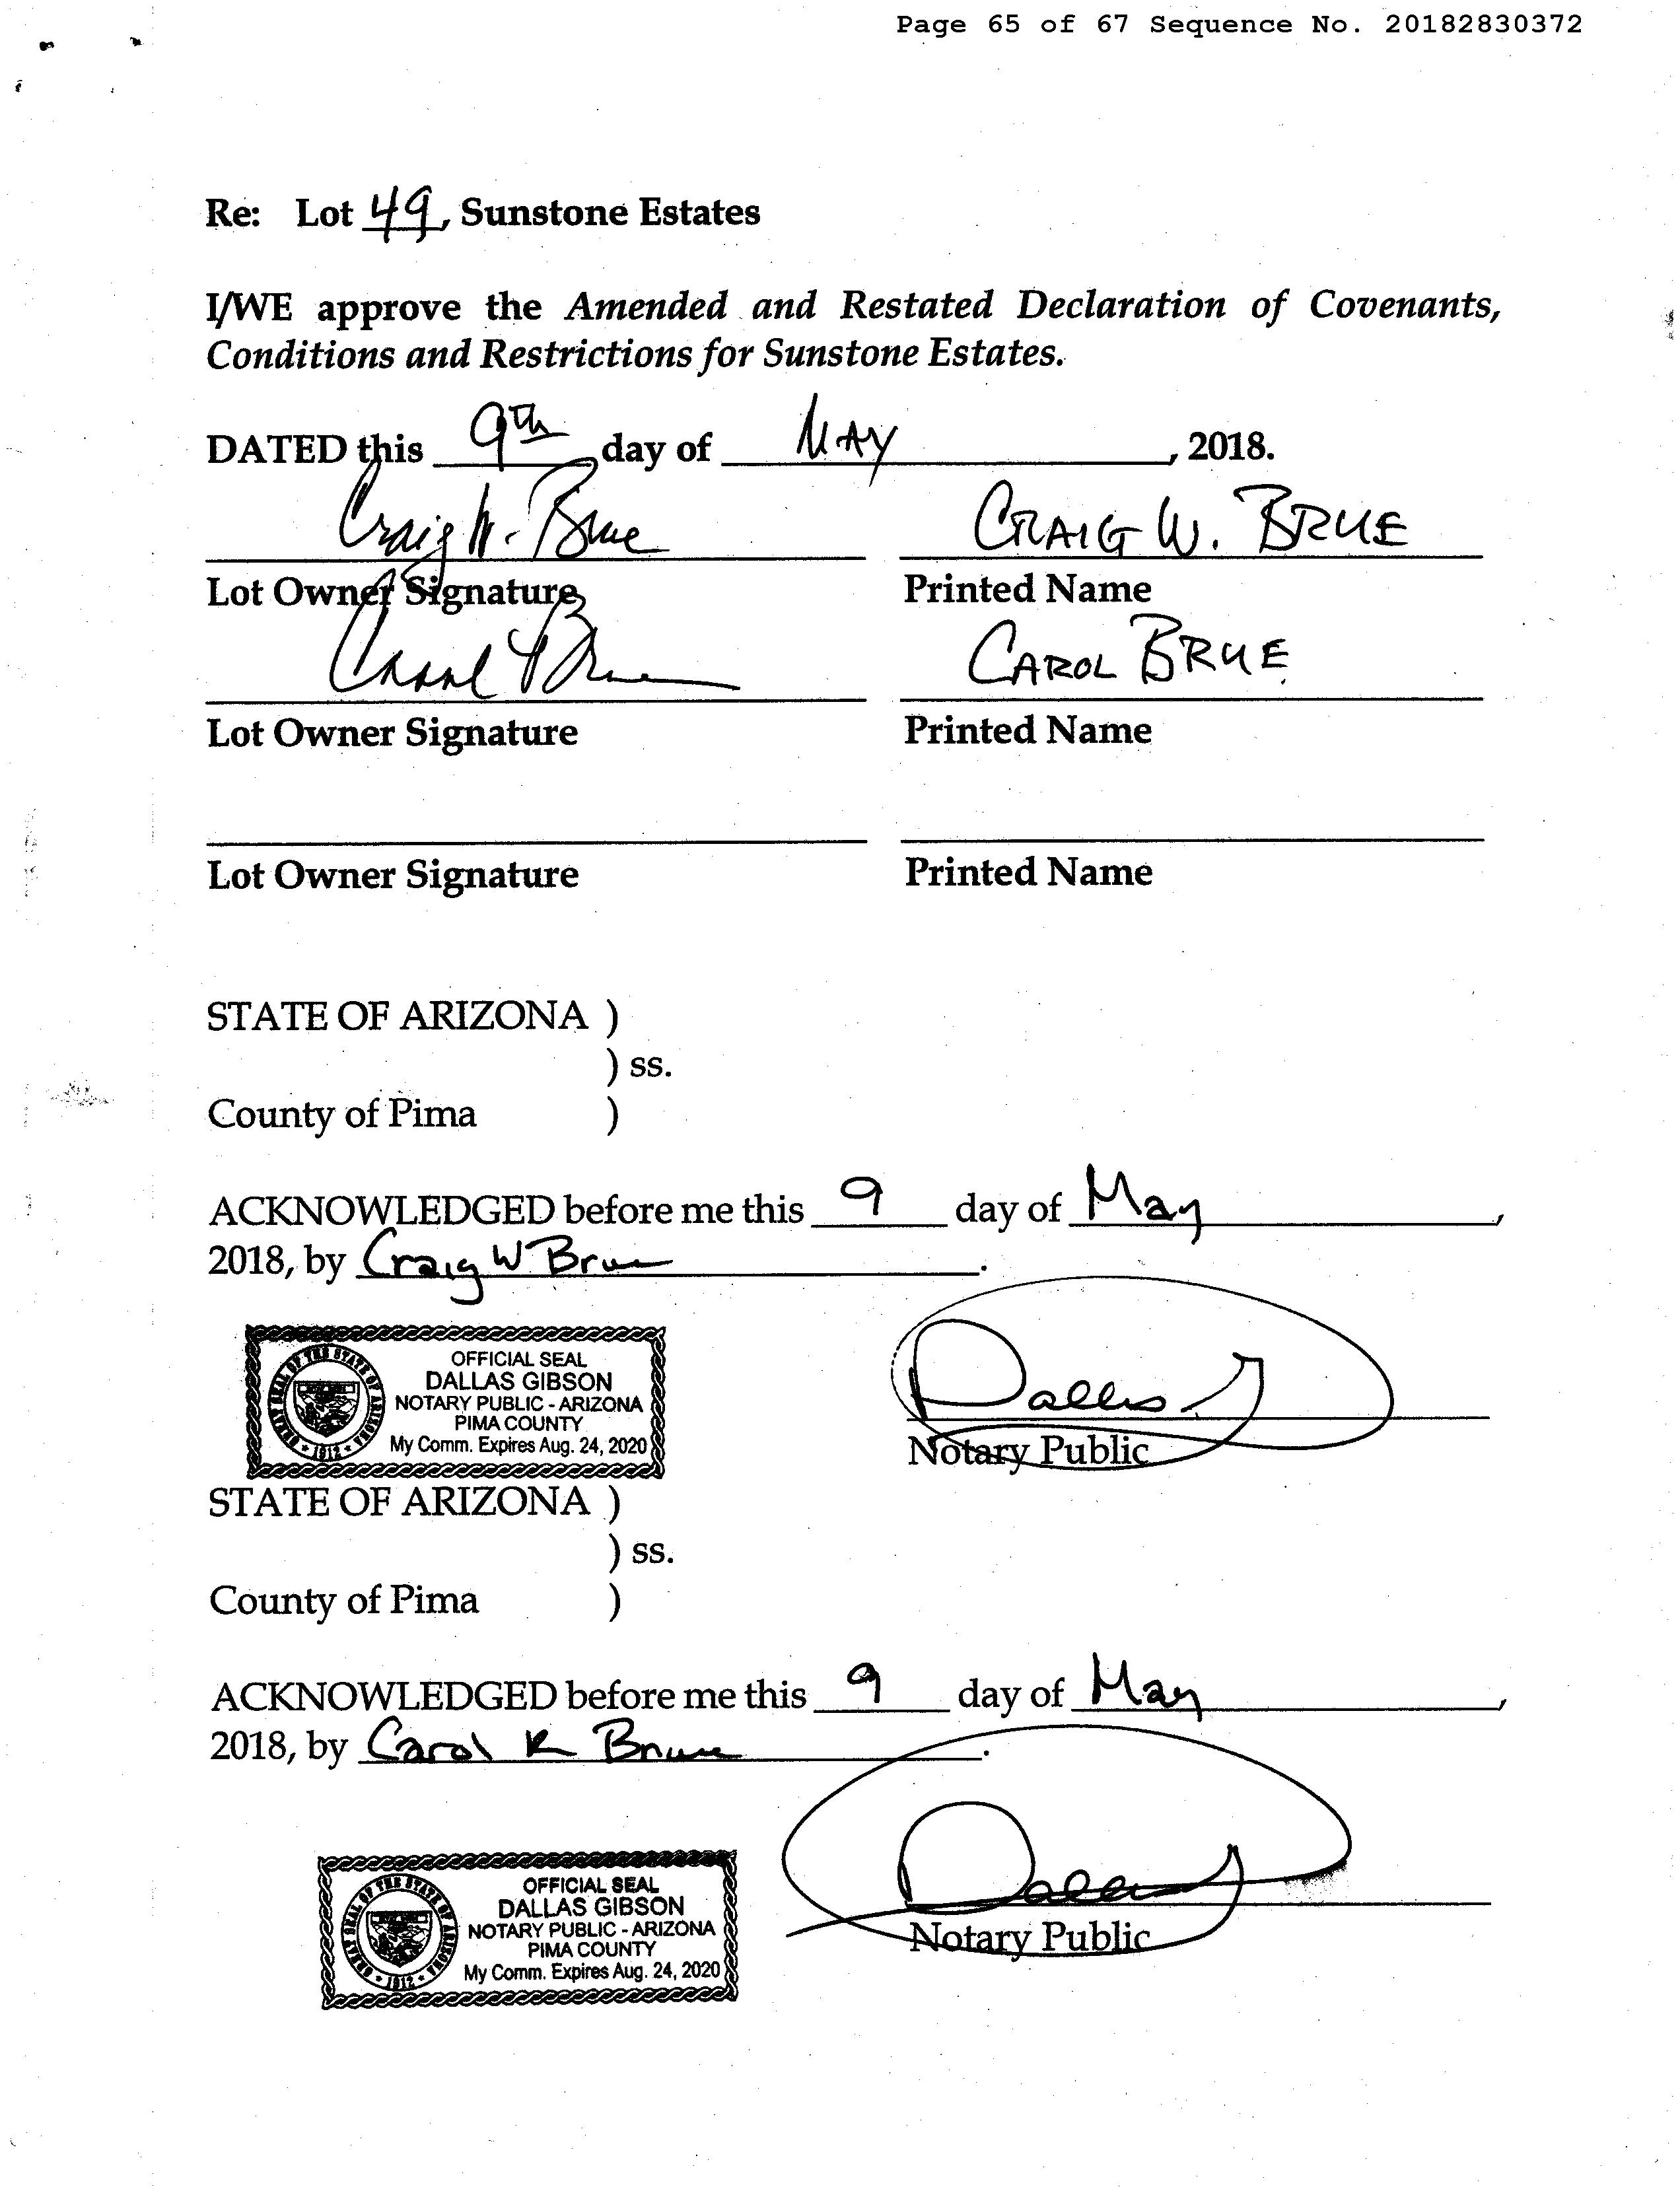 Page 65 of 67 Sequence No. 20182830372
Re: Lot 49, Sunstone Estates
I/WE approve the Amended and Restated Declaration of Covenants,
Conditions and Restrictions for Sunstone Estates.
DATED this 9th day of MAY, 2018.
Craig W. Brue CRAIG W. BRUE
Lot Owner Signature Printed Name
Carol Brue CAROL BRUE
Lot Owner Signature Printed Name
Lot Owner Signature Printed Name
STATE OF ARIZONA )
) ss.
County of Pima )
ACKNOWLEDGED before me this 9 day of May,
2018, by Craig W Brue.
GREAT SEAL OF THE STATE OF ARIZONA
1912
OFFICIAL SEAL
DALLAS GIBSON
NOTARY PUBLIC - ARIZONA
PIMA COUNTY
My Comm. Expires Aug. 24, 2020
Dallas
Notary Public
STATE OF ARIZONA )
) ss.
County of Pima )
ACKNOWLEDGED before me this 9 day of May,
2018, by Carol K Brue.
GREAT SEAL OF THE STATE OF ARIZONA
1912
OFFICIAL SEAL
DALLAS GIBSON
NOTARY PUBLIC - ARIZONA
PIMA COUNTY
My Comm. Expires Aug. 24, 2020
Dallas
Notary Public